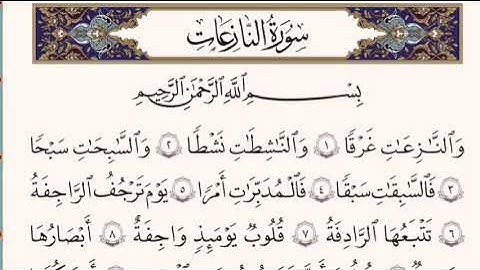 سُورَةُ النَّازِعَاتِ
بِسْمِ اللَّهِ الرَّحْمَٰنِ الرَّحِيمِ
وَالنَّازِعَاتِ غَرْقًا ١ وَالنَّاشِطَاتِ نَشْطًا ٢ وَالسَّابِحَاتِ سَبْحًا
٣ فَالسَّابِقَاتِ سَبْقًا ٤ فَالْمُدَبِّرَاتِ أَمْرًا ٥ يَوْمَ تَرْجُفُ الرَّاجِفَةُ
٦ تَتْبَعُهَا الرَّادِفَةُ ٧ قُلُوبٌ يَوْمَئِذٍ وَاجِفَةٌ ٨ أَبْصَارُهَا